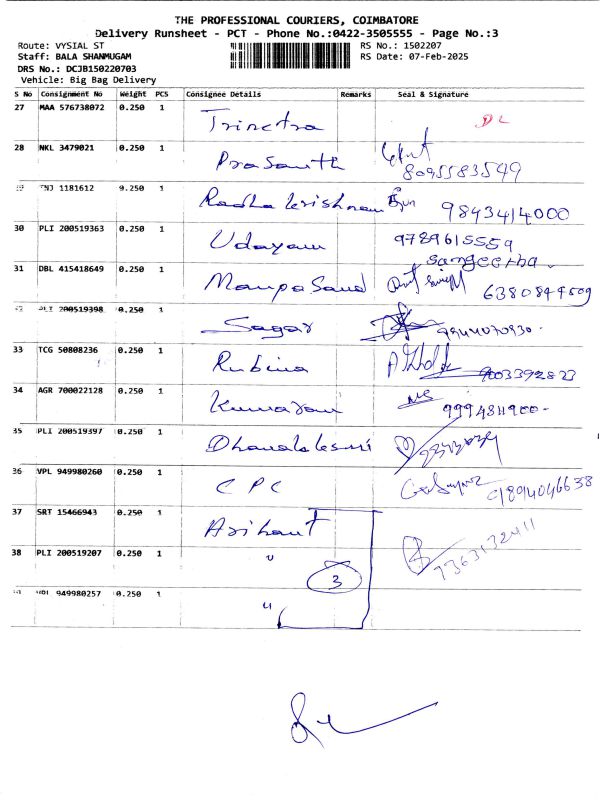 THE PROFESSIONAL COURIERS, COIMBATORE
Delivery Runsheet - PCT - Phone No.:0422-3505555 - Page No.:3
Route: VYSIAL ST RS No.: 1502207
Staff: BALA SHANMUGAM RS Date: 07-Feb-2025
DRS No.: DCJB150220703
Vehicle: Big Bag Delivery
S No Consignment No Weight PCS Consignee Details Remarks Seal & Signature
27 MAA 576738072 0.250 1 Trinetra DL
28 NKL 3479021 0.250 1 Prasanth
8095583549
TNJ 1181612 9.250 1 Radha krishnan 9843414000
30 PLI 200519363 0.250 1 Udayam 9789615559
sangeetha.
31 DBL 415418649 0.250 1 Manpasand
200519398 0.250 1 Sagar
33 TCG 50808236 0.250 1 Rubina 9003392823
34 AGR 700022128 0.250 1 Kumaran
35 PLI 200519397 0.250 1
36 VPL 949980260 0.250 1 CPC
37 SRT 15466943 0.250 1 Arihant
7363132411
38 PLI 200519207 0.250 1 "
3
949980257 0.250 1 "